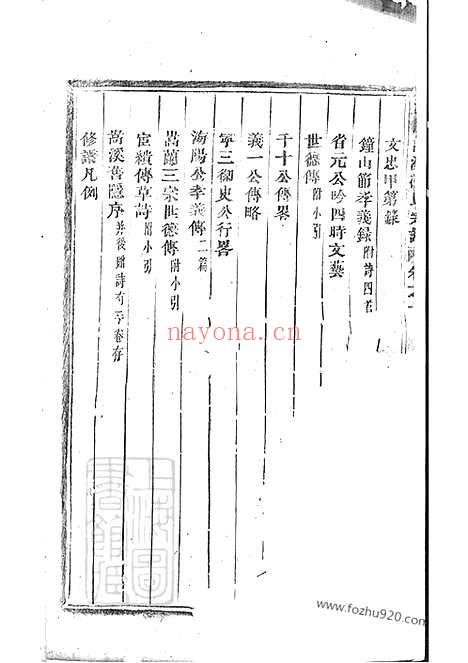 文忠甲第錄
鐘山節孝義錄 附詩四首
省元公吟四時文藝
世德傳 附小引
千十公傳畧
義一公傳略
寧三御史公行畧
海陽公孝義傳 二篇
嵩蘭三宗世德傳 附小引
宦績傳草詩 附小引
嵩溪書隱序 并後贈詩有手卷存
修譜凡例
nayona.cn
上海圖書館
www.fozhu920.com